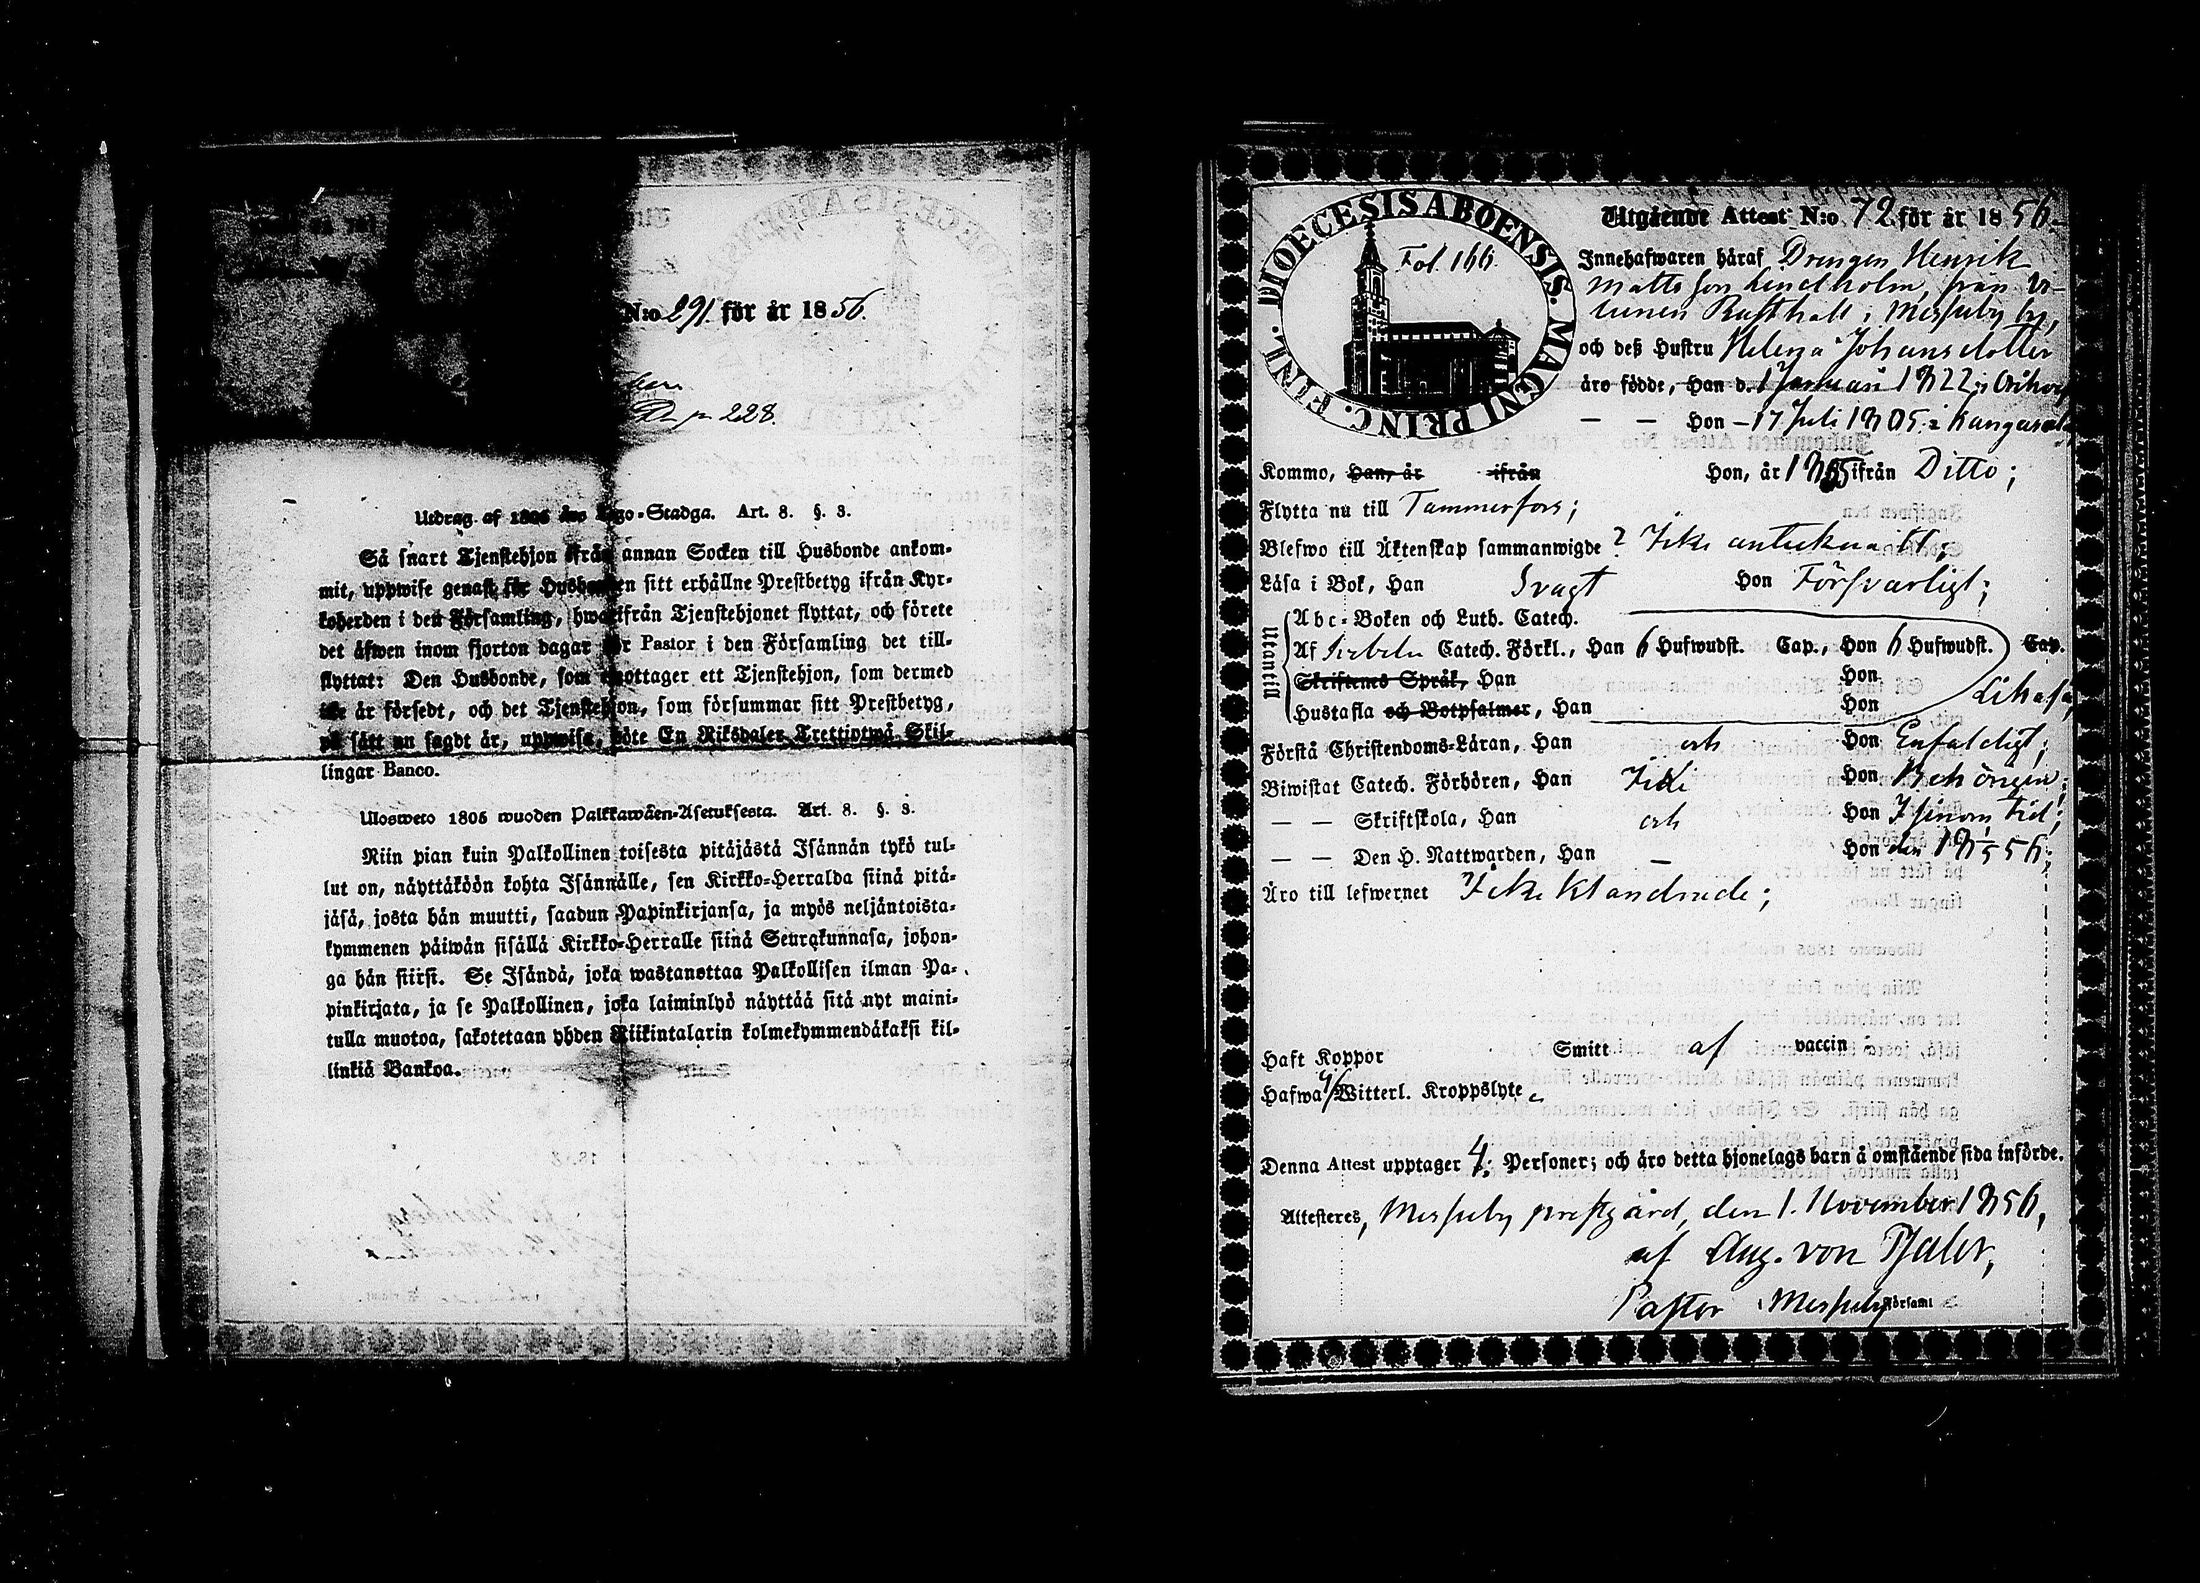 N:o 291. för år 1856.
p 228.
Utdrag af 1805 års Lego-Stadga. Art. 8. §. 3.
Så snart Tjenstehjon ifrån annan Socken till Husbonde ankom-
mit, uppwise genast för Husbonden sitt erhållne Prestbetyg ifrån Kyr-
koherden i den Församling, hwarifrån Tjenstehjonet flyttat, och förete
det äfwen inom fjorton dagar för Pastor i den Församling det till-
flyttat: Den Husbonde, som emottager ett Tjenstehjon, som dermed
icke är försedt, och det Tjenstehjon, som försummar sitt Prestbetyg,
på sätt nu sagdt är, uppwisa, böte En Riksdaler Trettiotwå Skil-
lingar Banco.
Ulosweto 1805 wuoden Palkkawäen-Asetuksesta. Art. 8. §. 3.
Niin pian kuin Palkollinen toisesta pitäjästä Isännän tykö tul-
lut on, näyttäköön kohta Isännälle, sen Kirkko-Herralda siinä pitä-
jäsä, josta hän muutti, saadun Papinkirjansa, ja myös neljäntoista-
kymmenen päiwän sisällä Kirkko-Herralle siinä Seurakunnasa, johon-
ga hän siirsi. Se Isändä, joka wastanottaa Palkollisen ilman Pa-
pinkirjata, ja se Palkollinen, joka laiminlyö näyttää sitä nyt maini-
tulla muotoa, sakotetaan yhden Riikintalarin kolmekymmendäkaksi kil-
linkiä Bankoa.
DIOECESIS ABOENSIS. MAGNI PRINC. FINL.
Fol. 166.
Utgående Attest N:o 72 för år 1856.
Innehafwaren häraf Drengen Henrik
Mattsson Lindholm, från
Rusthall i Messuby by,
och deß Hustru Helena Johansdotter
äro födde, Han d. 1 Januari 1822 i
— — Hon – 17 Juli 1805 i Kangasala
Kommo, Han, år ifrån Hon, år ifrån Ditto;
Flytta nu till Tammerfors;
Blefwo till Äktenskap sammanwigde? Icke anteknatt;
Läsa i Bok, Han Svagt Hon Försvarligt;
Utantill
Abc-Boken och Luth. Catech.
Af Catech. Förkl., Han 6 Hufwudst. Cap., Hon 6 Hufwudst. Cap.
Skriftenes Språk, Han Hon
Likaså,
Hustafla och Botpsalmer, Han Hon
Förstå Christendoms-Läran, Han och Hon Enfaldigt;
Biwistat Catech. Förhören, Han Icke Hon Behörigen;
— — Skriftskola, Han och Hon
— — Den H. Nattwarden, Han — Hon
Äro till lefwernet Icke klandrade;
Haft Koppor Smitt af vaccin
Hafwa Witterl. Kroppslyte
Denna Attest upptager 4: Personer; och äro detta hjonelags barn å omstående sida införde.
Attesteres, Messuby prestgård, den 1. November 1856,
af Aug. von Pfaler,
Pastor i Messuby Församl